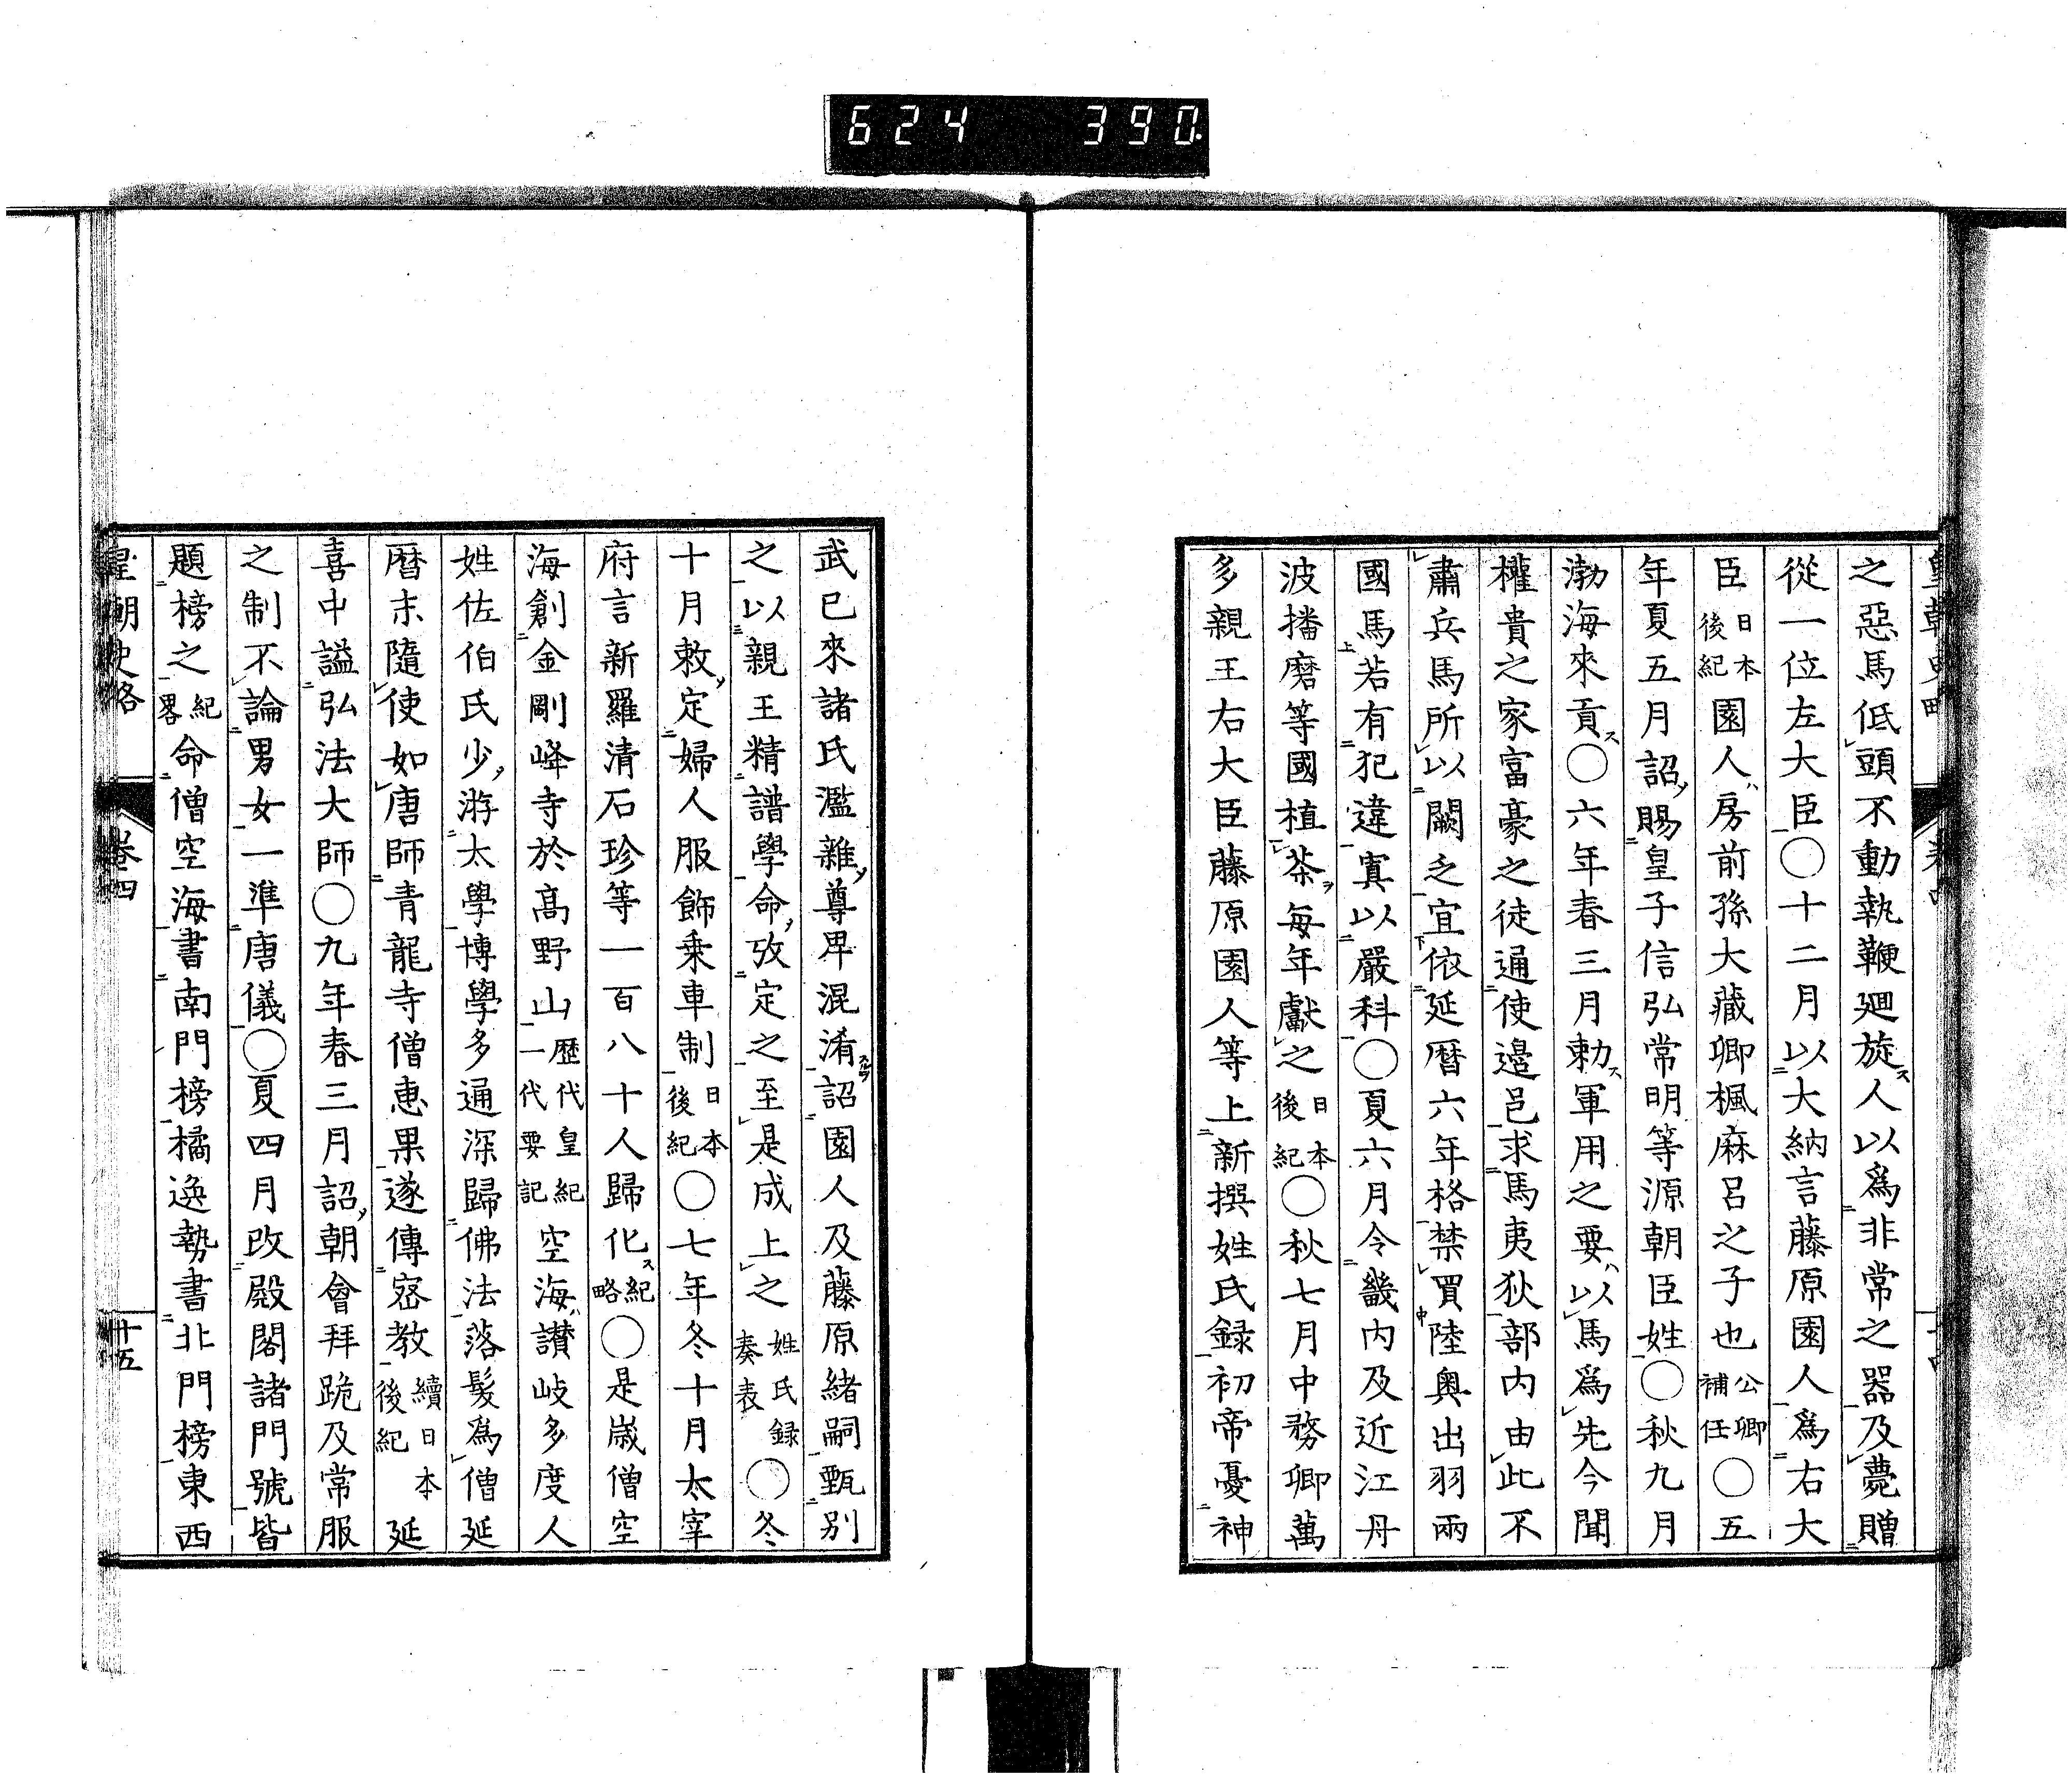 624 390
皇朝史略
之惡馬低頭不動執鞭廻旋ス人以爲非常之器及薨贈
從一位左大臣〇十二月以大納言藤原園人爲右大
臣日本後紀園人ハ房前孫大藏卿楓麻呂之子也公卿補任〇五
年夏五月詔ノ賜皇子信弘常明等源朝臣姓〇秋九月
渤海來貢ス〇六年春三月勅ス軍用之要ハ以馬爲先今聞
權貴之家富豪之徒通使邊邑求馬夷狄部内由此不
肅兵馬所以闕乏宜依延曆六年格禁買陸奧出羽兩
國馬若有犯違寘以嚴科〇夏六月令畿内及近江丹
波播磨等國植茶ヲ每年獻之日本後紀〇秋七月中務卿萬
多親王右大臣藤原園人等上新撰姓氏録初帝憂神
武已來諸氏濫雜ノ尊卑混淆スルヲ詔園人及藤原緒嗣甄别
之以親王精譜學命ノ攷定之至是成上之姓氏録奏表〇冬
十月敕ノ定婦人服飾乘車制日本後紀〇七年冬十月太宰
府言新羅清石珍等一百八十人歸化ス紀略〇是歲僧空
海創金剛峰寺於高野山歷代皇紀一代要記空海ハ讃岐多度人
姓佐伯氏少ノ游太學博學多通深歸佛法落髮爲僧延
曆末隨使如唐師青龍寺僧惠果遂傳密教續日本後紀延
喜中謚弘法大師〇九年春三月詔ノ朝會拜跪及常服
之制不論男女一準唐儀〇夏四月改殿閣諸門號皆
題榜之紀畧命僧空海書南門榜橘逸勢書北門榜東西
皇朝史略 卷四 十五